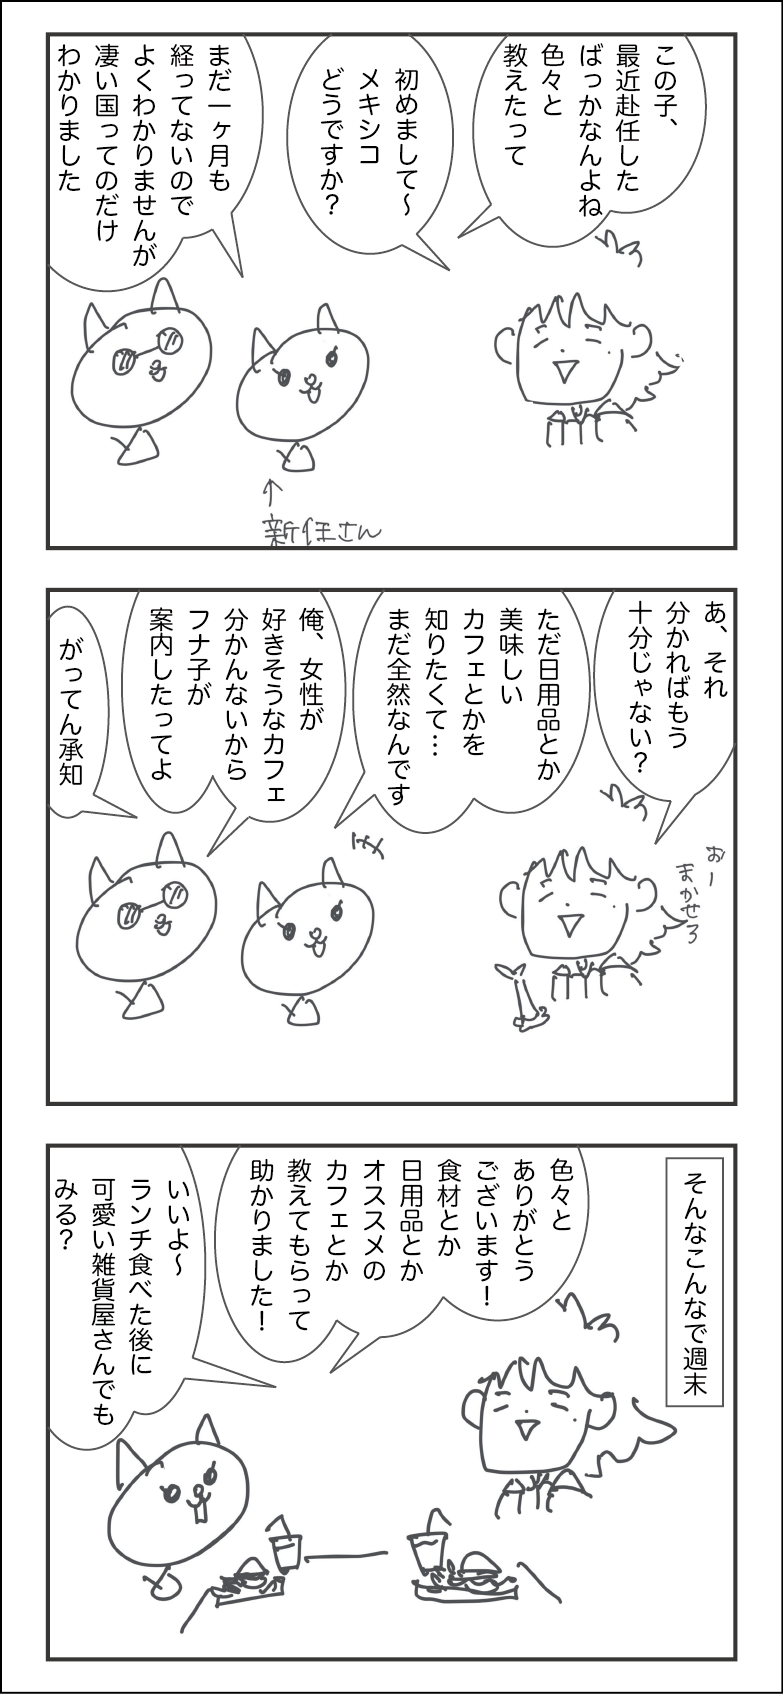 この子、
最近赴任した
ばっかなんよね
色々と
教えたって
初めまして〜
メキシコ
どうですか？
まだ一ヶ月も
経ってないので
よくわかりませんが
凄い国ってのだけ
わかりました
↑
新任さん
あ、それ
分かればもう
十分じゃない？
おー
まかせろ
ただ日用品とか
美味しい
カフェとかを
知りたくて…
まだ全然なんです
俺、女性が
好きそうなカフェ
分かんないから
フナ子が
案内したってよ
がってん承知
そんなこんなで週末
色々と
ありがとう
ございます！
食材とか
日用品とか
オススメの
カフェとか
教えてもらって
助かりました！
いいよ〜
ランチ食べた後に
可愛い雑貨屋さんでも
みる？